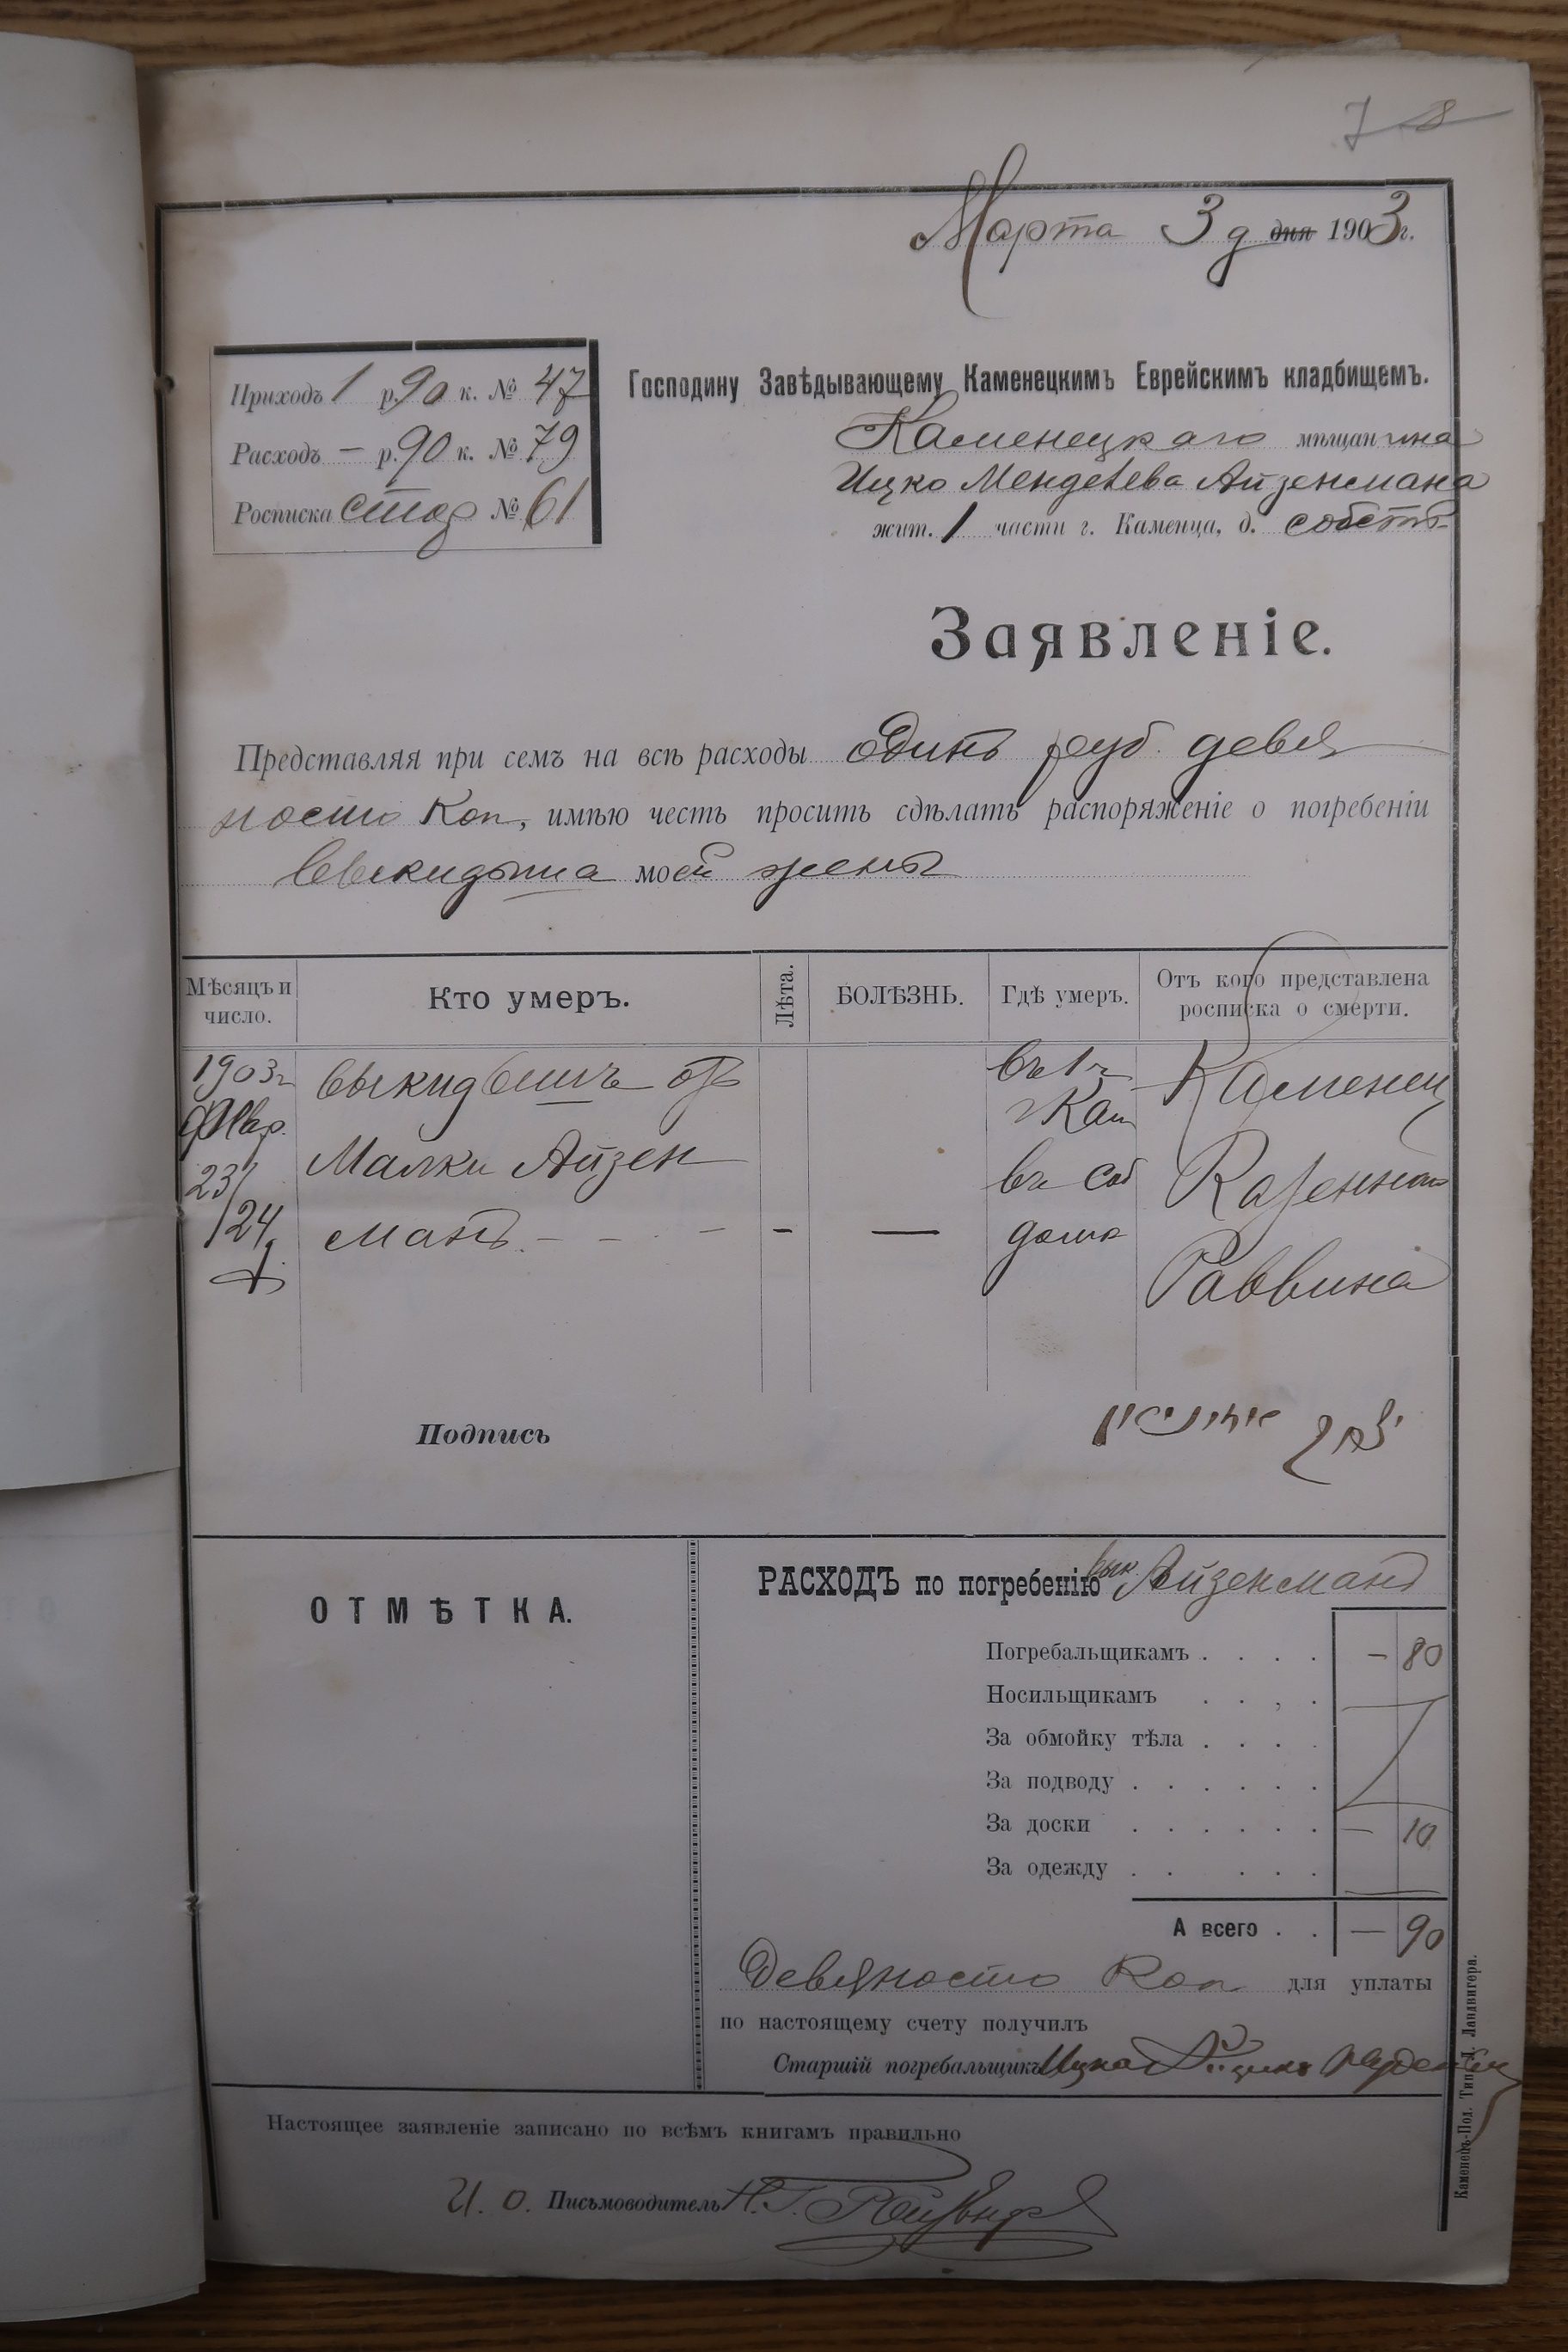 7 8
Марта 3 д дня 1903 г.
Приходъ 1 р. 90 к. № 47
Расходъ — р. 90 к. № 79
Росписка № 61
Господину Завѣдывающему Каменецкимъ Еврейскимъ кладбищемъ.
Каменецкаго мѣщанина
Ицко Менделева Айзенмана
жит. 1 части г. Каменца, д. собств
Заявленіе.
Представляя при семъ на всѣ расходы Одинъ руб. девя
носто Коп, имѣю честь просить сдѣлать распоряженіе о погребеніи
выкидыша моей жены
Мѣсяцъ и число.
Кто умеръ.
Лѣта.
БОЛѢЗНЬ.
Гдѣ умеръ.
Отъ кого представлена росписка о смерти.
1903г
Февр.
23/
/24
выкидышъ отъ
Малки Айзен
манъ - - - -
-
—
въ 1 ч
г Кам
въ соб
домѣ
Каменец
Казеннаго
Раввина
Подпись
יצחק אייזנמאן
ОТМѢТКА.
РАСХОДЪ по погребенію вык. Айзенманъ
Погребальщикамъ . . . . — 80
Носильщикамъ . . , .
За обмойку тѣла . . . .
За подводу . . . . . .
За доски . . . . . . — 10
За одежду . . . . .
А всего . . — 90
Девяносто Коп для уплаты
по настоящему счету получилъ
Старшій погребальщикъ Ицко
Настоящее заявленіе записано по всѣмъ книгамъ правильно
И. О. Письмоводитель
Каменецъ-Под. Тип. Д. Ландвигера.